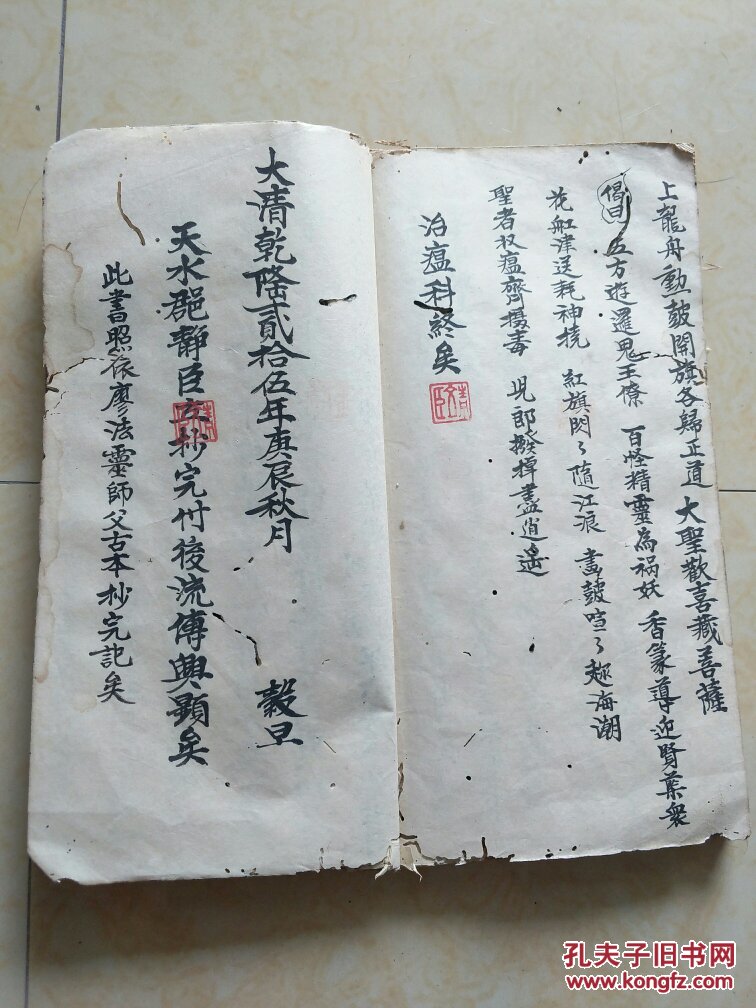 上龍舟勳皷開旗各歸正道 大聖歡喜藏菩薩
偈曰 五方遊邏鬼王僚 百怪精靈為祸妖 香篆導迎賢葉衆
花舡津送耗神撓 紅旗閃〻隨江浪 畫皷喧〻趂海潮
聖者收瘟齊攝毒 兇郎撥棹盡逍遙
治瘟科終矣
大清乾隆貳拾伍年庚辰秋月 穀旦
天水郡靜臣立抄完付後流傳興顯矣
此書照依廖法靈師父古本抄完記矣
孔夫子旧书网
www.kongfz.com